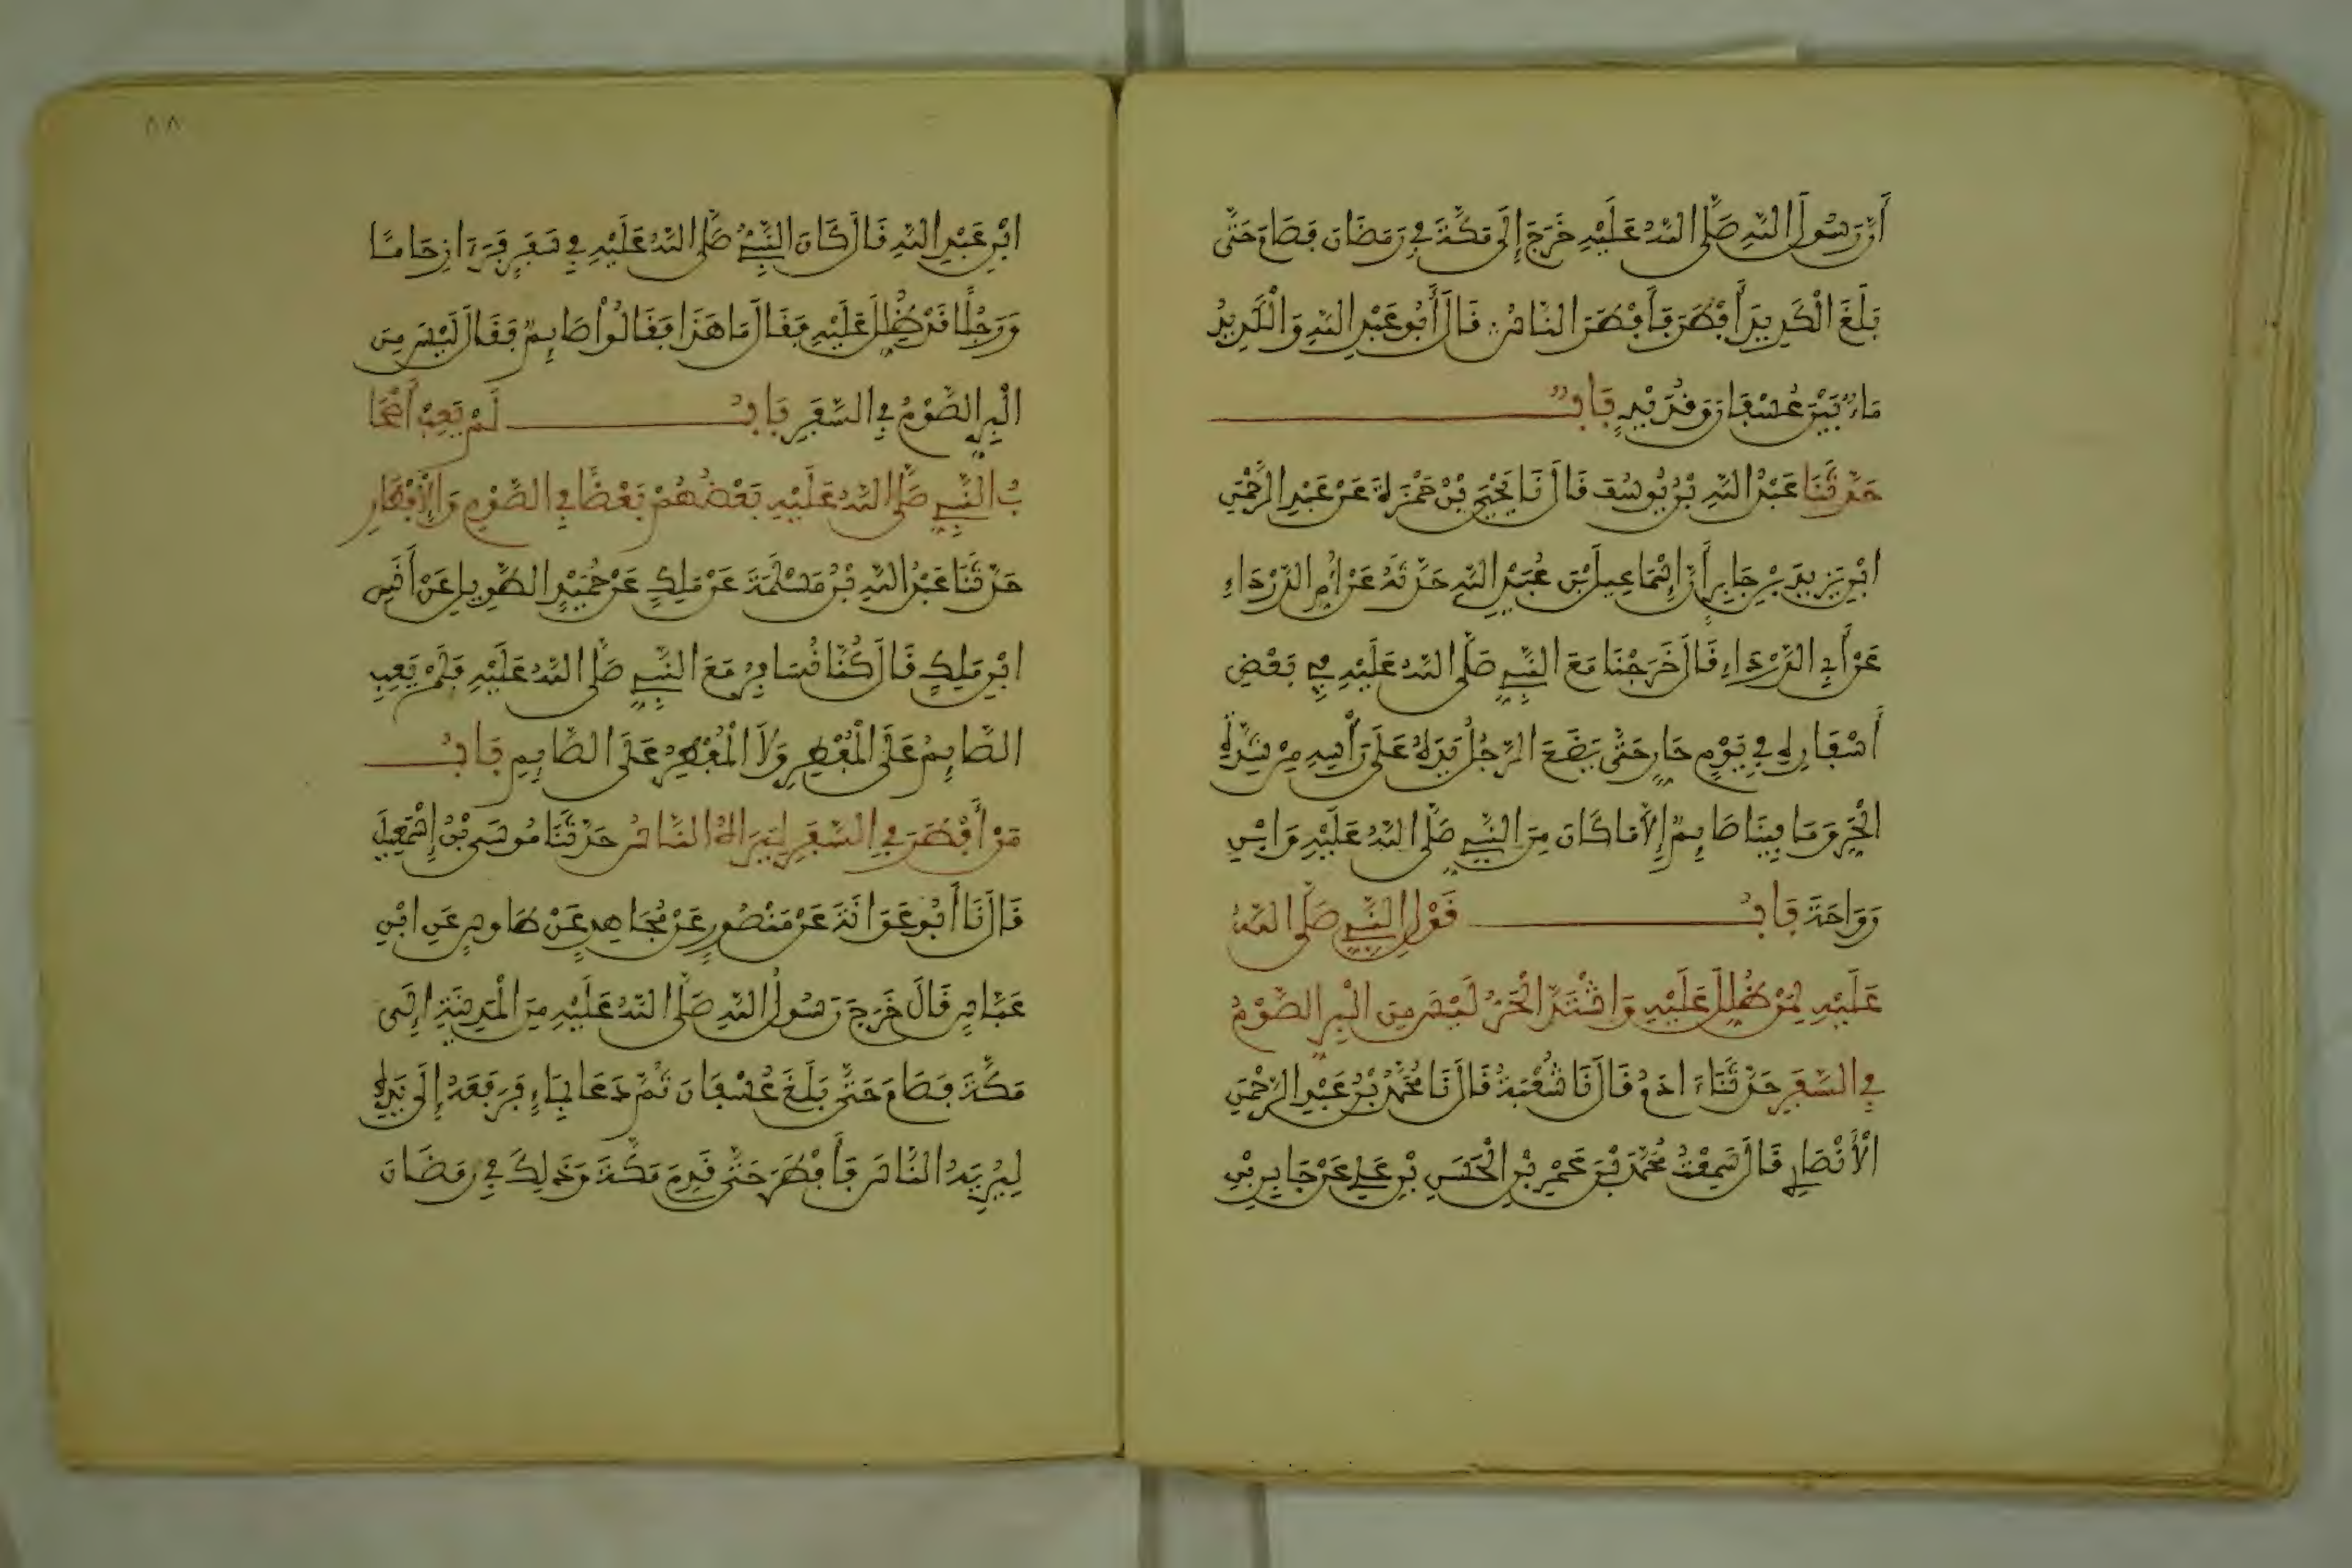 أَنَّ رَسُولَ اللَّهِ صَلَّى اللَّهُ عَلَيْهِ خَرَجَ إِلَى مَكَّةَ فِي رَمَضَانَ فَصَامَ حَتَّى
بَلَغَ الْكَدِيدَ أَفْطَرَ فَأَفْطَرَ النَّاسُ قَالَ أَبُو عَبْدِ اللَّهِ وَالْكَدِيدُ
مَاءٌ بَيْنَ عُسْفَانَ وَقُدَيْدٍ بَابٌ
حَدَّثَنَا عَبْدُ اللَّهِ بْنُ يُوسُفَ قَالَ نَا يَحْيَى بْنُ حَمْزَةَ عَنْ عَبْدِ الرَّحْمَنِ
ابْنِ يَزِيدَ بْنِ جَابِرٍ أَنَّ إِسْمَاعِيلَ بْنَ عُبَيْدِ اللَّهِ حَدَّثَهُ عَنْ أُمِّ الدَّرْدَاءِ
عَنْ أَبِي الدَّرْدَاءِ قَالَ خَرَجْنَا مَعَ النَّبِيِّ صَلَّى اللَّهُ عَلَيْهِ فِي بَعْضِ
أَسْفَارِهِ فِي يَوْمٍ حَارٍّ حَتَّى يَضَعَ الرَّجُلُ يَدَهُ عَلَى رَأْسِهِ مِنْ شِدَّةِ
الْحَرِّ وَمَا فِينَا صَائِمٌ إِلَّا مَا كَانَ مِنَ النَّبِيِّ صَلَّى اللَّهُ عَلَيْهِ وَابْنِ
رَوَاحَةَ بَابُ قَوْلِ النَّبِيِّ صَلَّى اللَّهُ
عَلَيْهِ لِمَنْ ظُلِّلَ عَلَيْهِ وَاشْتَدَّ الْحَرُّ لَيْسَ مِنَ الْبِرِّ الصَّوْمُ
فِي السَّفَرِ حَدَّثَنَا ءَادَمُ قَالَ نَا شُعْبَةُ قَالَ نَا مُحَمَّدُ بْنُ عَبْدِ الرَّحْمَنِ
الْأَنْصَارِي قَالَ سَمِعْتُ مُحَمَّدَ بْنَ عَمْرِو بْنِ الْحَسَنِ بْنِ عَلِي عَنْ جَابِرِ بْنِ
٨٨
ابْنِ عَبْدِ اللَّهِ قَالَ كَانَ النَّبِيُّ صَلَّى اللَّهُ عَلَيْهِ فِي سَفَرٍ فَرَءَا زِحَامًا
وَرَجُلًا قَدْ ظُلِّلَ عَلَيْهِ فَقَالَ مَا هَذَا فَقَالُوا صَائِمٌ فَقَالَ لَيْسَ مِنَ
الْبِرِّ الصَّوْمُ فِي السَّفَرِ بَابُ لَمْ يَعِبْ أَصْحَا
بُ النَّبِيِّ صَلَّى اللَّهُ عَلَيْهِ بَعْضُهُمْ بَعْضًا فِي الصَّوْمِ وَالْإِفْطَارِ
حَدَّثَنَا عَبْدُ اللَّهِ بْنُ مَسْلَمَةَ عَنْ مَلِكٍ عَنْ حُمَيْدٍ الطَّوِيلِ عَنْ أَنَسِ
ابْنِ مَلِكٍ قَالَ كُنَّا نُسَافِرُ مَعَ النَّبِيِّ صَلَّى اللَّهُ عَلَيْهِ فَلَمْ يَعِبِ
الصَّائِمُ عَلَى الْمُفْطِرِ وَلَا الْمُفْطِرُ عَلَى الصَّائِمِ بَابُ
مَنْ أَفْطَرَ فِي السَّفَرِ لِيَرَاهُ النَّاسُ حَدَّثَنَا مُوسَى بْنُ إِسْمَعِيلَ
قَالَ نَا أَبُو عَوَانَةَ عَنْ مَنْصُورٍ عَنْ مُجَاهِدٍ عَنْ طَاوسٍ عَنِ ابْنِ
عَبَّاسٍ قَالَ خَرَجَ رَسُولُ اللَّهِ صَلَّى اللَّهُ عَلَيْهِ مِنَ الْمَدِينَةِ إِلَى
مَكَّةَ فَصَامَ حَتَّى بَلَغَ عُسْفَانَ ثُمَّ دَعَا بِمَاءٍ فَرَفَعَهُ إِلَى يَدِهِ
لِيُرِيَهُ النَّاسَ فَأَفْطَرَ حَتَّى قَدِمَ مَكَّةَ وَذَلِكَ فِي رَمَضَانَ